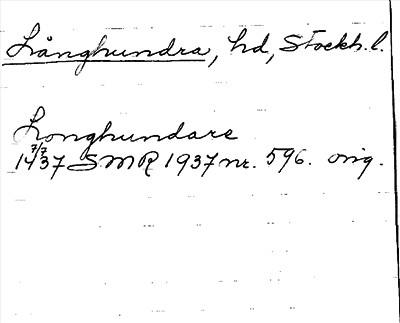 Långhundra, hd, Stockh. l.
Longhundare
14 7/7 37 SMR 1937 nr. 596. orig.